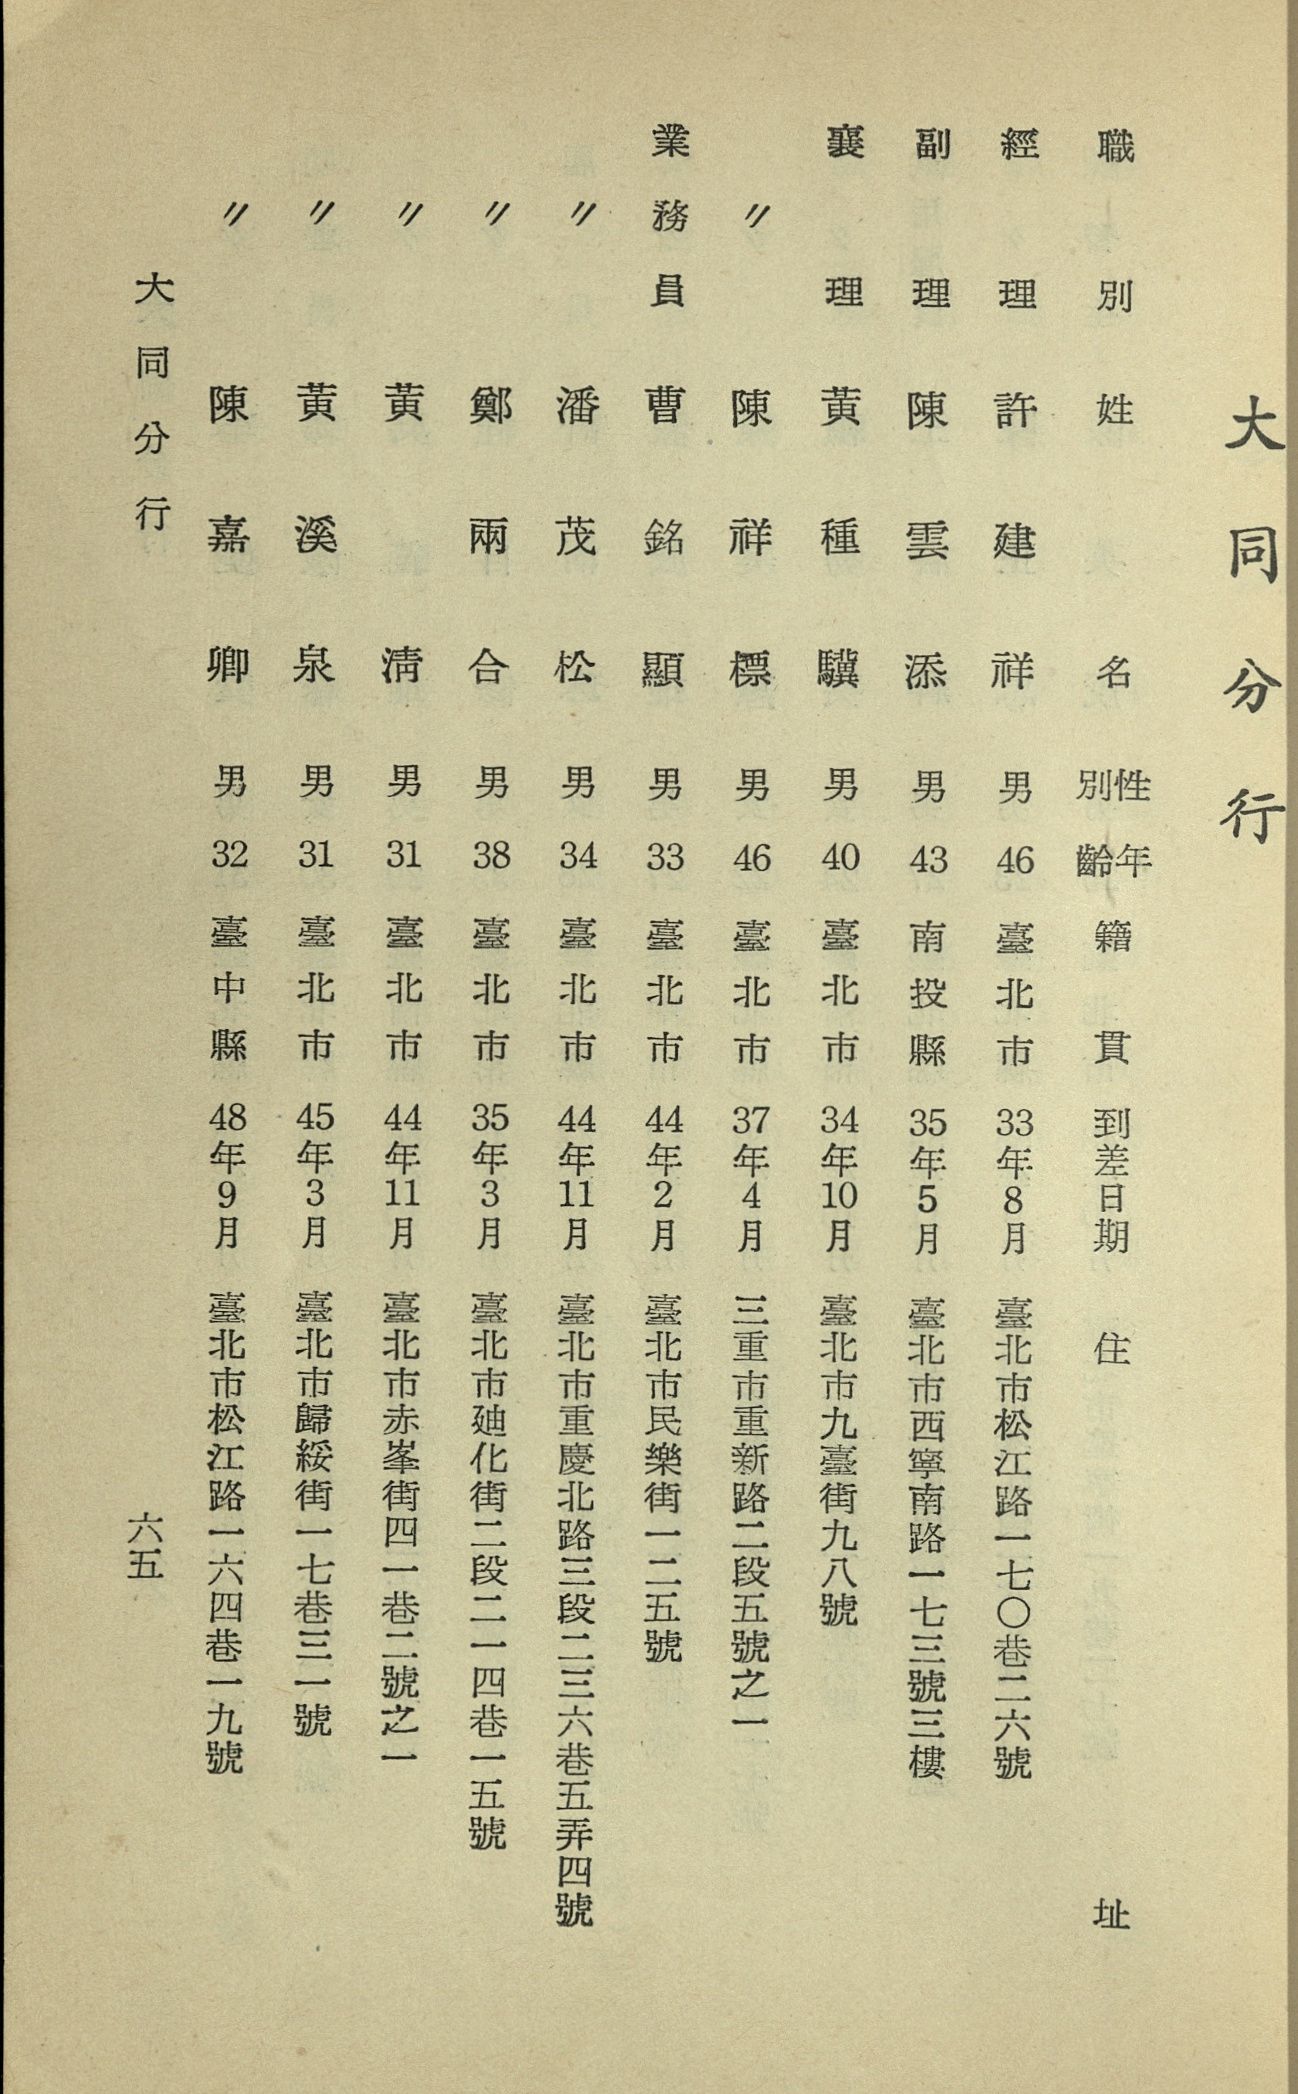 大同分行
職別 姓名 性別 年齡 籍貫 到差日期 住址
經理 許建祥 男 46 臺北市 33年8月 臺北市松江路一七〇巷二六號
副理 陳雲添 男 43 南投縣 35年5月 臺北市西寧南路一七三號三樓
襄理 黃種驥 男 40 臺北市 34年10月 臺北市九臺街九八號
〃 陳祥標 男 46 臺北市 37年4月 三重市重新路二段五號之一
業務員 曹銘顯 男 33 臺北市 44年2月 臺北市民樂街一二五號
〃 潘茂松 男 34 臺北市 44年11月 臺北市重慶北路三段二三六巷五弄四號
〃 鄭兩合 男 38 臺北市 35年3月 臺北市廸化街二段二一四巷一五號
〃 黃清 男 31 臺北市 44年11月 臺北市赤峯街四一巷二號之一
〃 黃溪泉 男 31 臺北市 45年3月 臺北市歸綏街一七巷三一號
〃 陳嘉卿 男 32 臺中縣 48年9月 臺北市松江路一六四巷一九號
大同分行 六五